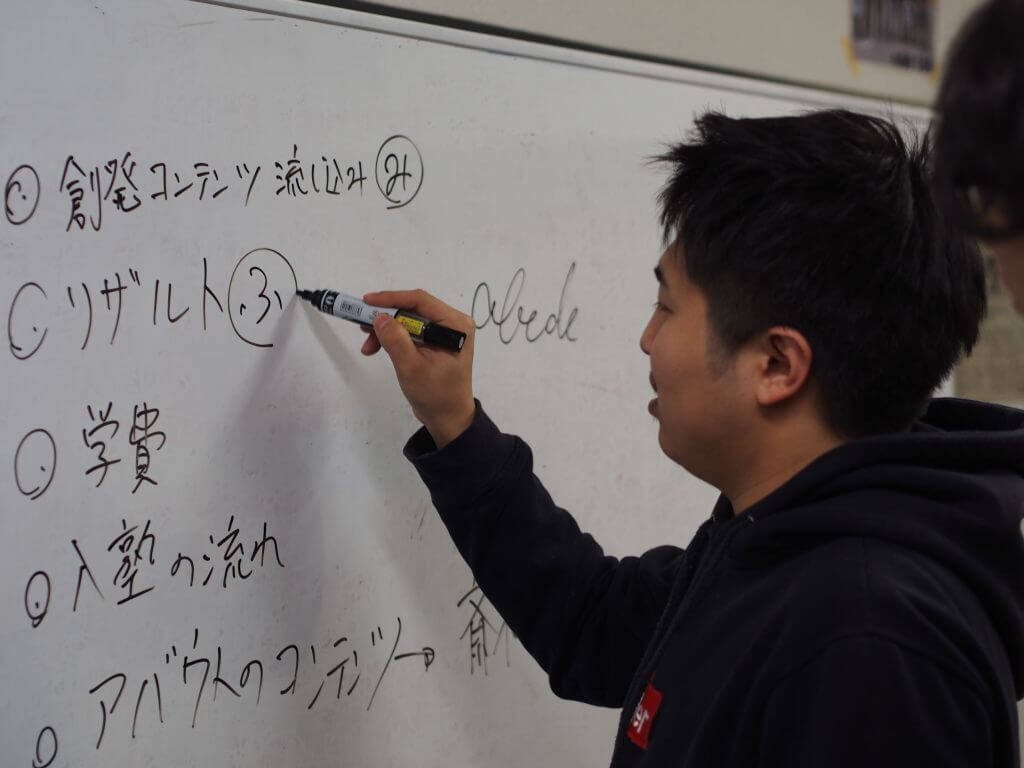 創発コンテンツ流し込み み
リザルト ふ abcde
学費
入塾の流れ
アバウトのコンテンツ→